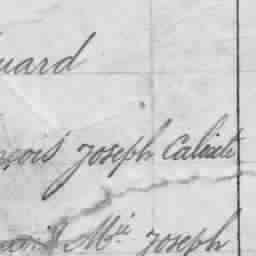 uard
nçois Joseph Calixte
Mie Joseph